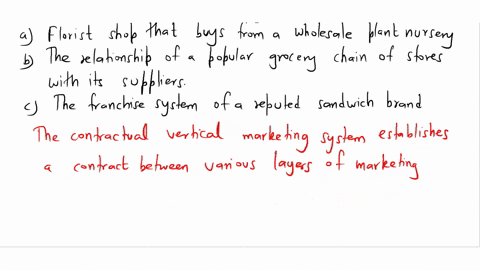 a) Florist shop that buys from a wholesale plant nursery
b) The relationship of a popular grocery chain of stores
with its suppliers.
c) The franchise system of a reputed sandwich brand
The contractual vertical marketing system establishes
a contract between various layers of marketing